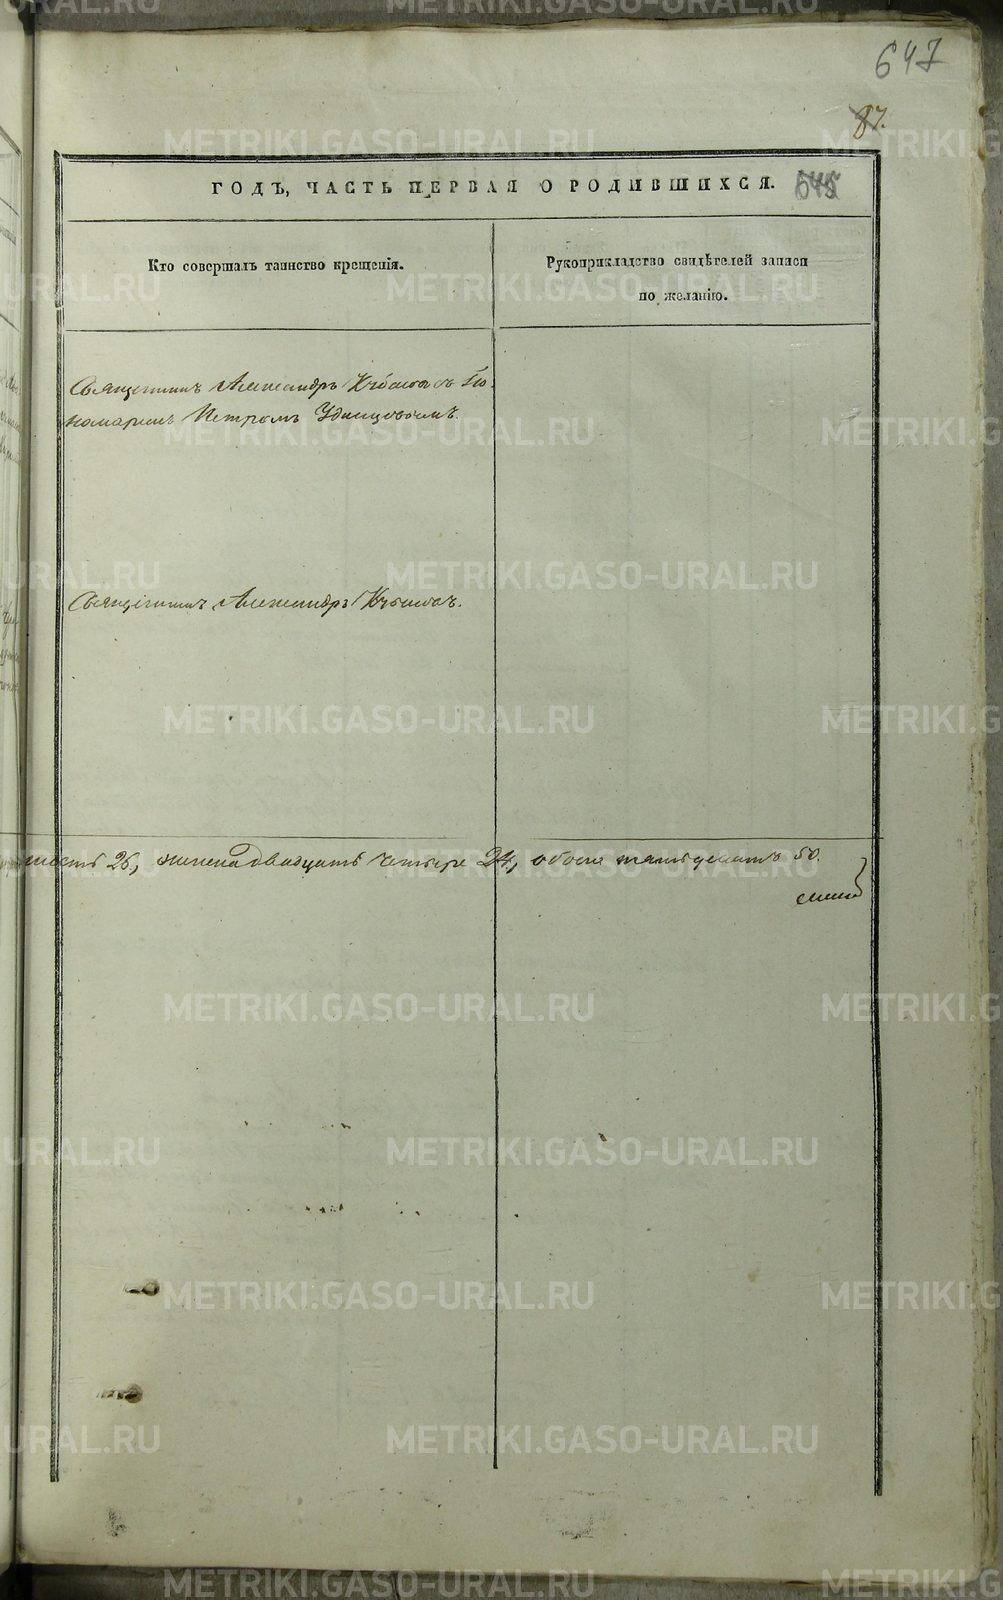 647
87.
ГОДЪ, ЧАСТЬ ПЕРВАЯ О РОДИВШИХСЯ.
645
Кто совершалъ таинство крещенія.
Рукоприкладство свидѣтелей записи
по желанію.
Священникъ Александръ съ По-
номаремъ Петромъ Удинцовымъ.
Священникъ Александръ
шесть 26, женска двадцать четыре 24, обоего пятьдесятъ 50.
METRIKI.GASO-URAL.RU